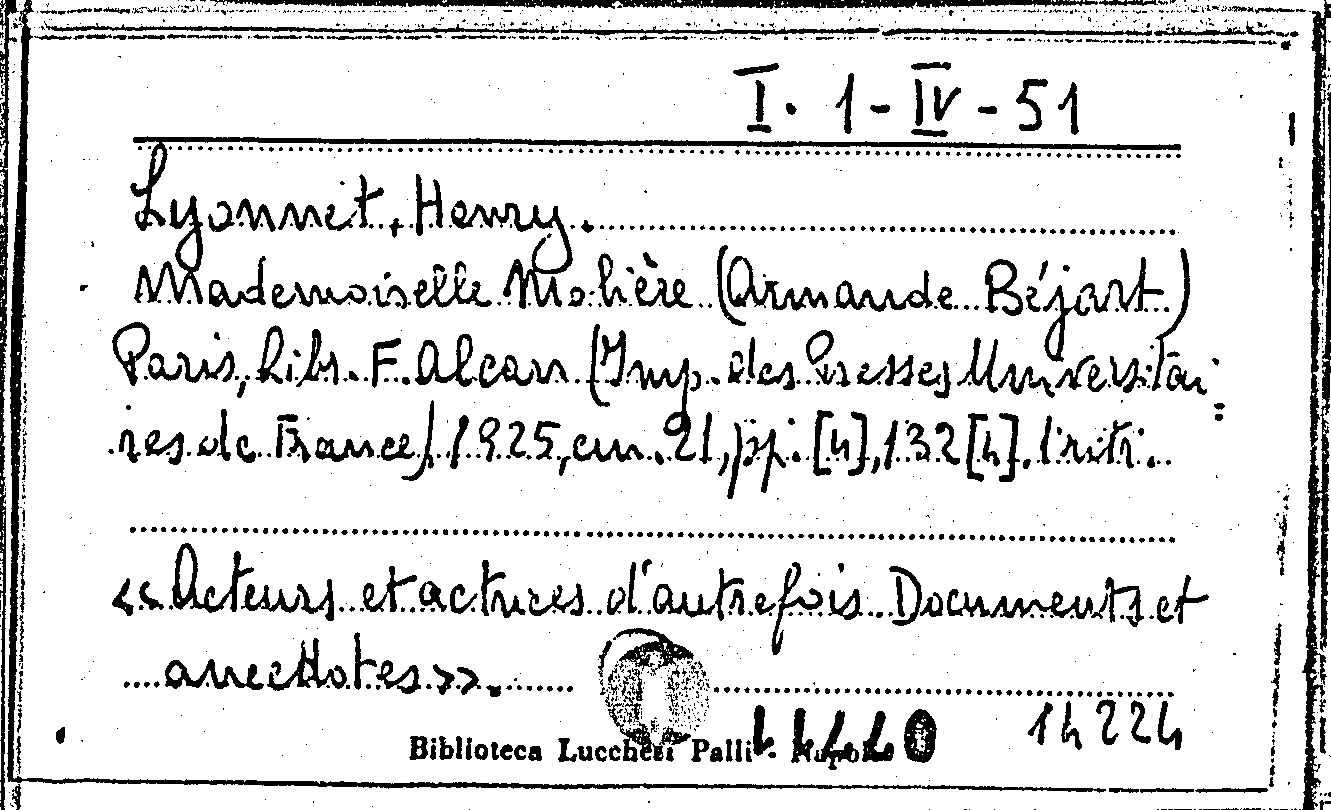 I. 1-IV-51
Lyonnet, Henry.
Mademoiselle Molière (Armande Béjart)
Paris, Libr. F. Alcan (Imp. des Presses Universitai-
res de France), 1925, cm. 21, pp. [4], 132 [4]. 1 ritr.
«Acteurs et actrices d'autrefois. Documents et
anecdotes».
14224
Biblioteca Lucchesi Palli - Napoli